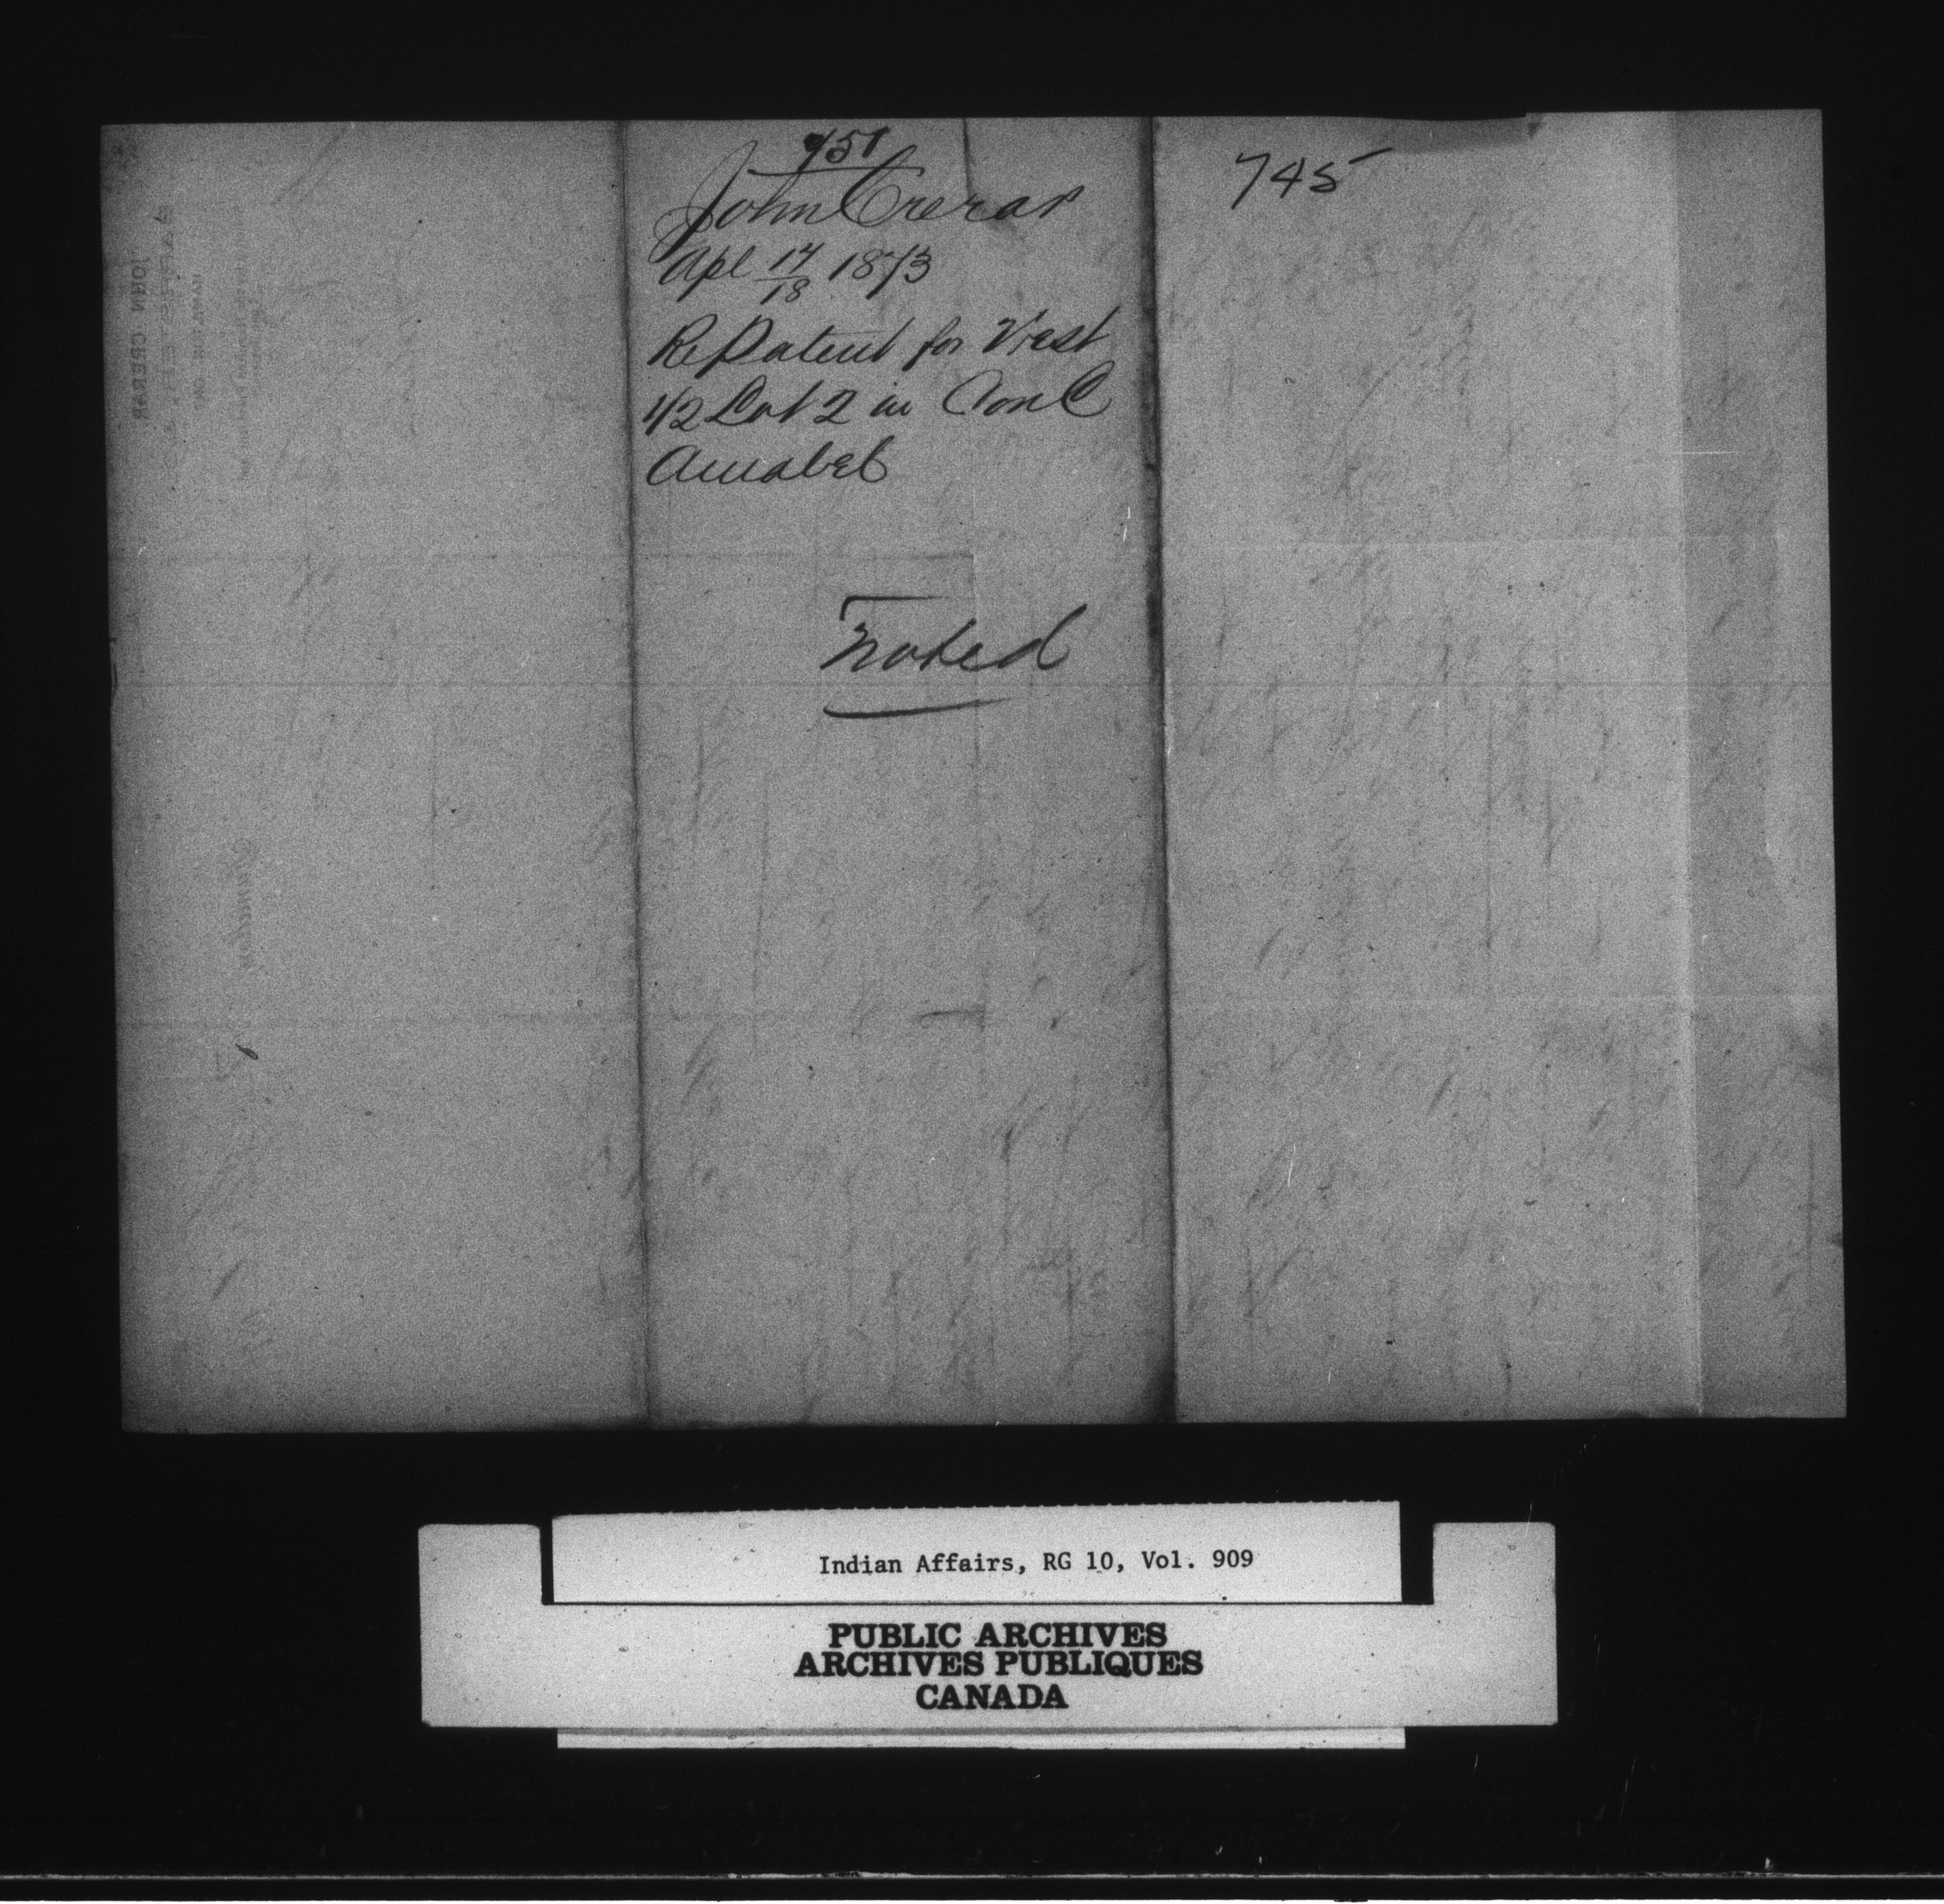 751
John Crerar
Apl 17/18 1873
Re Patent for West
1/2 Lot 2 in Con C
Amabel
Noted
745
JOHN CRERAR
Indian Affairs, RG 10, Vol. 909
PUBLIC ARCHIVES
ARCHIVES PUBLIQUES
CANADA